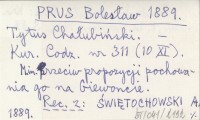 PRUS Bolesław 1889.
Tytus Chałubiński. —
Kur. Codz. nr 311 (10 XI.)
Min. przeciw propozycji pochowa-
nia go na Giewoncie.
Rec. 2: ŚWIĘTOCHOWSKI A.
1889.